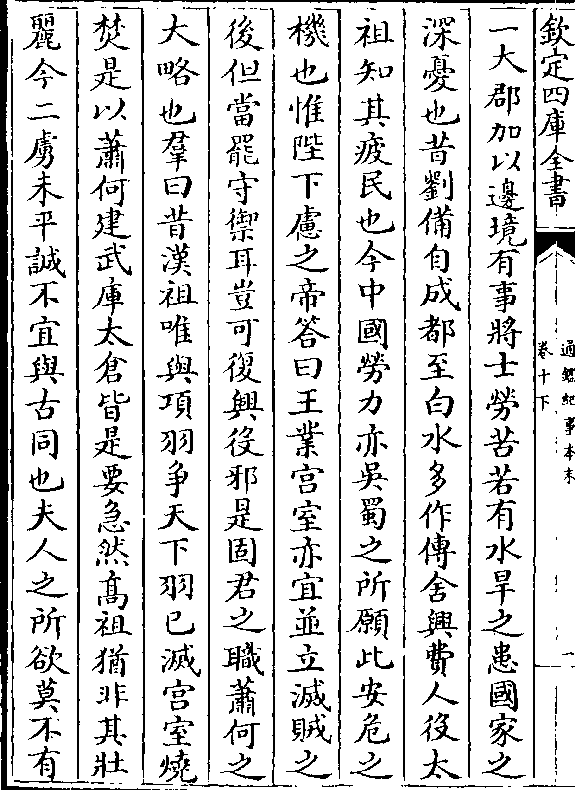 欽定四庫全書
通鑑紀事本末
卷十下
一大郡加以邊境有事將士勞苦若有水旱之患國家之
深憂也昔劉備自成都至白水多作傳舍興費人役太
祖知其疲民也今中國勞力亦吳蜀之所願此安危之
機也惟陛下慮之帝答曰王業宫室亦宜並立滅賊之
後但當罷守禦耳豈可復興役邪是固君之職蕭何之
大略也羣曰昔漢祖唯與項羽争天下羽已滅宫室燒
焚是以蕭何建武庫太倉皆是要急然髙祖猶非其壯
麗今二虜未平誠不宜與古同也夫人之所欲莫不有